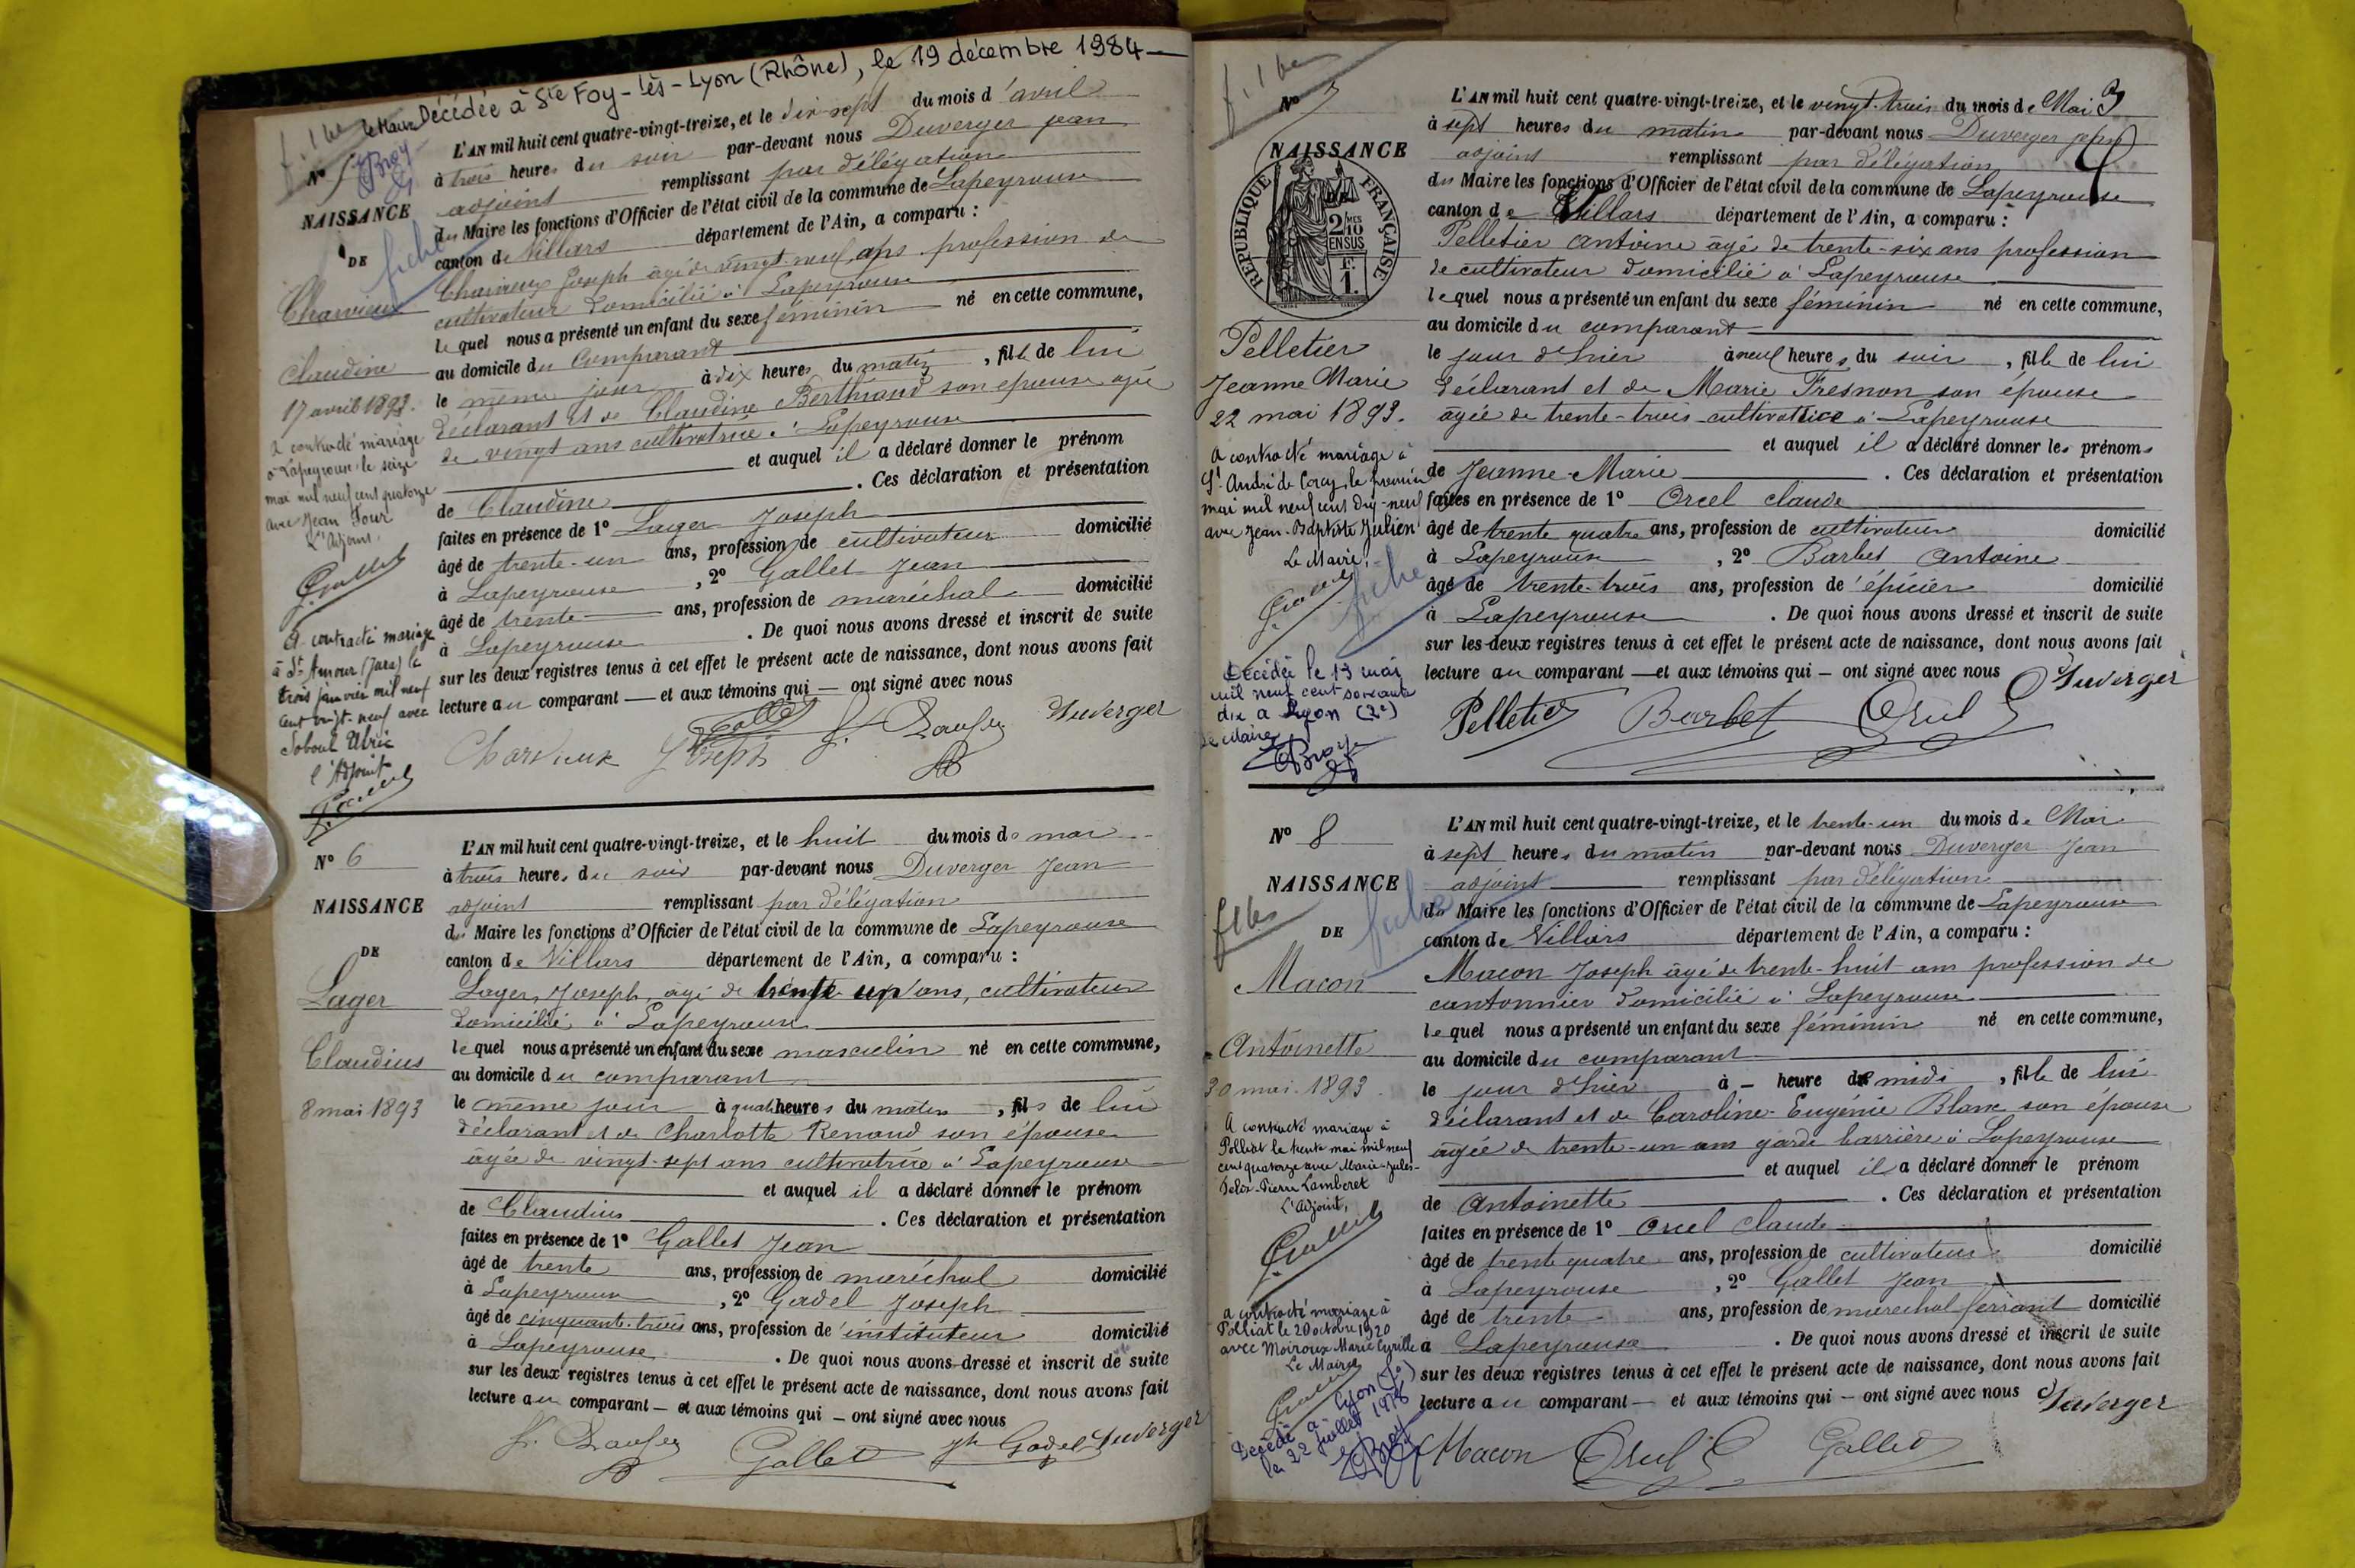 Décédée à Ste Foy-lès-Lyon (Rhône), le 19 décembre 1984
le Maire
Nº 5
NAISSANCE
DE
fiche
Charvieux
Claudine
17 avril 1893.
a contracté mariage
à Lapeyrouse le seize
mai mil neuf cent quatorze
avec Jean Four
L'Adjoint,
A contracté mariage
à St Amour (Jura) le
trois janvier mil neuf
cent vingt-neuf avec
l'Adjoint
L'AN mil huit cent quatre-vingt-treize, et le dix sept du mois d'avril
à trois heures du soir par-devant nous Duverger jean
adjoint remplissant par délégation
du Maire les fonctions d'Officier de l'état civil de la commune de Lapeyrouse
canton de Villars département de l'Ain, a comparu :
Charvieux Joseph âgé de vingt-neuf ans profession de
cultivateur domicilié à Lapeyrouse
lequel nous a présenté un enfant du sexe féminin né en cette commune,
au domicile du comparant
le même jour à dix heures du matin, fille de lui
déclarant et de Claudine Berthiand son épouse agée
de vingt ans cultivatrice à Lapeyrouse
et auquel il a déclaré donner le prénom
de Claudine . Ces déclaration et présentation
faites en présence de 1º Lager Joseph
âgé de trente-un ans, profession de cultivateur domicilié
à Lapeyrouse , 2º Gallet Jean
âgé de trente ans, profession de maréchal domicilié
à Lapeyrouse . De quoi nous avons dressé et inscrit de suite
sur les deux registres tenus à cet effet le présent acte de naissance, dont nous avons fait
lecture au comparant — et aux témoins qui — ont signé avec nous
Charvieux Joseph Gallet Duverger
Nº 6
NAISSANCE
DE
Lager
Claudius
8 mai 1893
L'AN mil huit cent quatre-vingt-treize, et le huit du mois de mai
à trois heures du soir par-devant nous Duverger Jean
adjoint remplissant par délégation
du Maire les fonctions d'Officier de l'état civil de la commune de Lapeyrouse
canton de Villars département de l'Ain, a comparu :
Lager, Joseph, âgé de trente un ans, cultivateur
domicilié à Lapeyrouse
lequel nous a présenté un enfant du sexe masculin né en cette commune,
au domicile du comparant
le même jour à quatre heures du matin, fils de lui
déclarant et de Charlotte Renaud son épouse
âgée de vingt-sept ans cultivatrice à Lapeyrouse
et auquel il a déclaré donner le prénom
de Claudius . Ces déclaration et présentation
faites en présence de 1º Gallet Jean
âgé de trente ans, profession de maréchal domicilié
à Lapeyrouse , 2º Gadel Joseph
âgé de cinquante-trois ans, profession de instituteur domicilié
à Lapeyrouse . De quoi nous avons dressé et inscrit de suite
sur les deux registres tenus à cet effet le présent acte de naissance, dont nous avons fait
lecture au comparant — et aux témoins qui — ont signé avec nous
Gallet Jh Gadel Duverger
3
Nº 7
NAISSANCE
RÉPUBLIQUE FRANÇAISE
2/10 MES
EN SUS
F.
1.
Pelletier
Jeanne Marie
22 mai 1893.
A contracté mariage à
St André de Corcy, le premier
mai mil neuf cent dix-neuf
avec Jean-Baptiste Julien
Le Maire,
fiche
Décédée le 13 mai
mil neuf cent soixante
dix à Lyon (2e)
Le Maire
L'AN mil huit cent quatre-vingt-treize, et le vingt-trois du mois de Mai
à sept heures du matin par-devant nous Duverger jean
adjoint remplissant par délégation
du Maire les fonctions d'Officier de l'état civil de la commune de Lapeyrouse
canton de Villars département de l'Ain, a comparu :
Pelletier Antoine âgé de trente-six ans profession
de cultivateur domicilié à Lapeyrouse
lequel nous a présenté un enfant du sexe féminin né en cette commune,
au domicile du comparant
le jour d'hier à neuf heures du soir, fille de lui
déclarant et de Marie Fresnon son épouse
âgée de trente-trois cultivatrice à Lapeyrouse
et auquel il a déclaré donner les prénoms
de Jeanne-Marie . Ces déclaration et présentation
faites en présence de 1º Orcel Claude
âgé de trente quatre ans, profession de cultivateur domicilié
à Lapeyrouse , 2º Barbet Antoine
âgé de trente-trois ans, profession de épicier domicilié
à Lapeyrouse . De quoi nous avons dressé et inscrit de suite
sur les deux registres tenus à cet effet le présent acte de naissance, dont nous avons fait
lecture au comparant — et aux témoins qui — ont signé avec nous
Pelletier Barbet Orcel Duverger
Nº 8
NAISSANCE
DE
fiche
Macon
Antoinette
30 mai 1893.
A contracté mariage à
Polliat le trente mai mil neuf
cent quatorze avec Marie-Jules-
Pierre Lamberet
L'Adjoint,
a contracté mariage à
Polliat le 20 octobre 1920
avec Moiroux Marie Cyrille
Le Maire
Décédé à Lyon
le 22 juillet 1978
L'AN mil huit cent quatre-vingt-treize, et le trente-un du mois de Mai
à sept heures du matin par-devant nous Duverger Jean
adjoint remplissant par délégation
du Maire les fonctions d'Officier de l'état civil de la commune de Lapeyrouse
canton de Villars département de l'Ain, a comparu :
Macon Joseph âgé de trente-huit ans profession de
cantonnier domicilié à Lapeyrouse
lequel nous a présenté un enfant du sexe féminin né en cette commune,
au domicile du comparant
le jour d'hier à — heure de midi, fille de lui
déclarant et de Caroline-Eugénie Blanc son épouse
âgée de trente-un ans garde barrière à Lapeyrouse
et auquel il a déclaré donner le prénom
de Antoinette . Ces déclaration et présentation
faites en présence de 1º Orcel Claude
âgé de trente quatre ans, profession de cultivateur domicilié
à Lapeyrouse , 2º Gallet Jean
âgé de trente ans, profession de maréchal ferrant domicilié
à Lapeyrouse . De quoi nous avons dressé et inscrit de suite
sur les deux registres tenus à cet effet le présent acte de naissance, dont nous avons fait
lecture au comparant — et aux témoins qui — ont signé avec nous
Macon Orcel Gallet Duverger